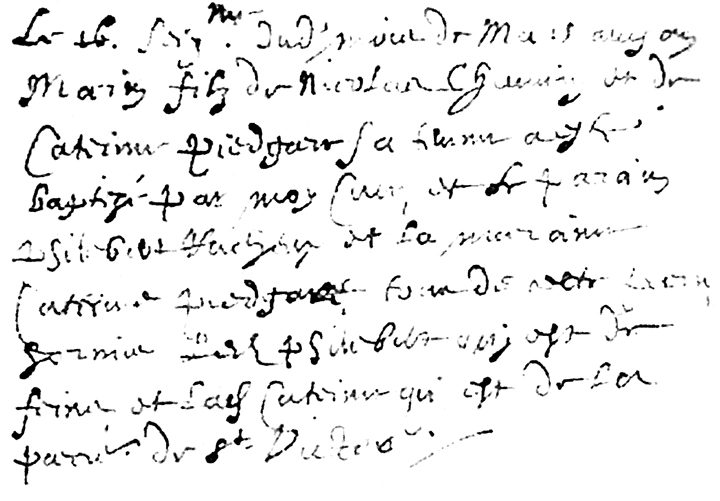 Le 16. Seiz.me dud. mois de Mars aud. an
Marin filz de Nicolas Chauvin et de
Caterine piedgars sa femme a este
baptizé par moy Curé et le parain
philebert et la maraine
Caterine piedgars tous de cette
led. philebert qui est de
et lad. Caterine qui est de La
parr. de St. Victor.